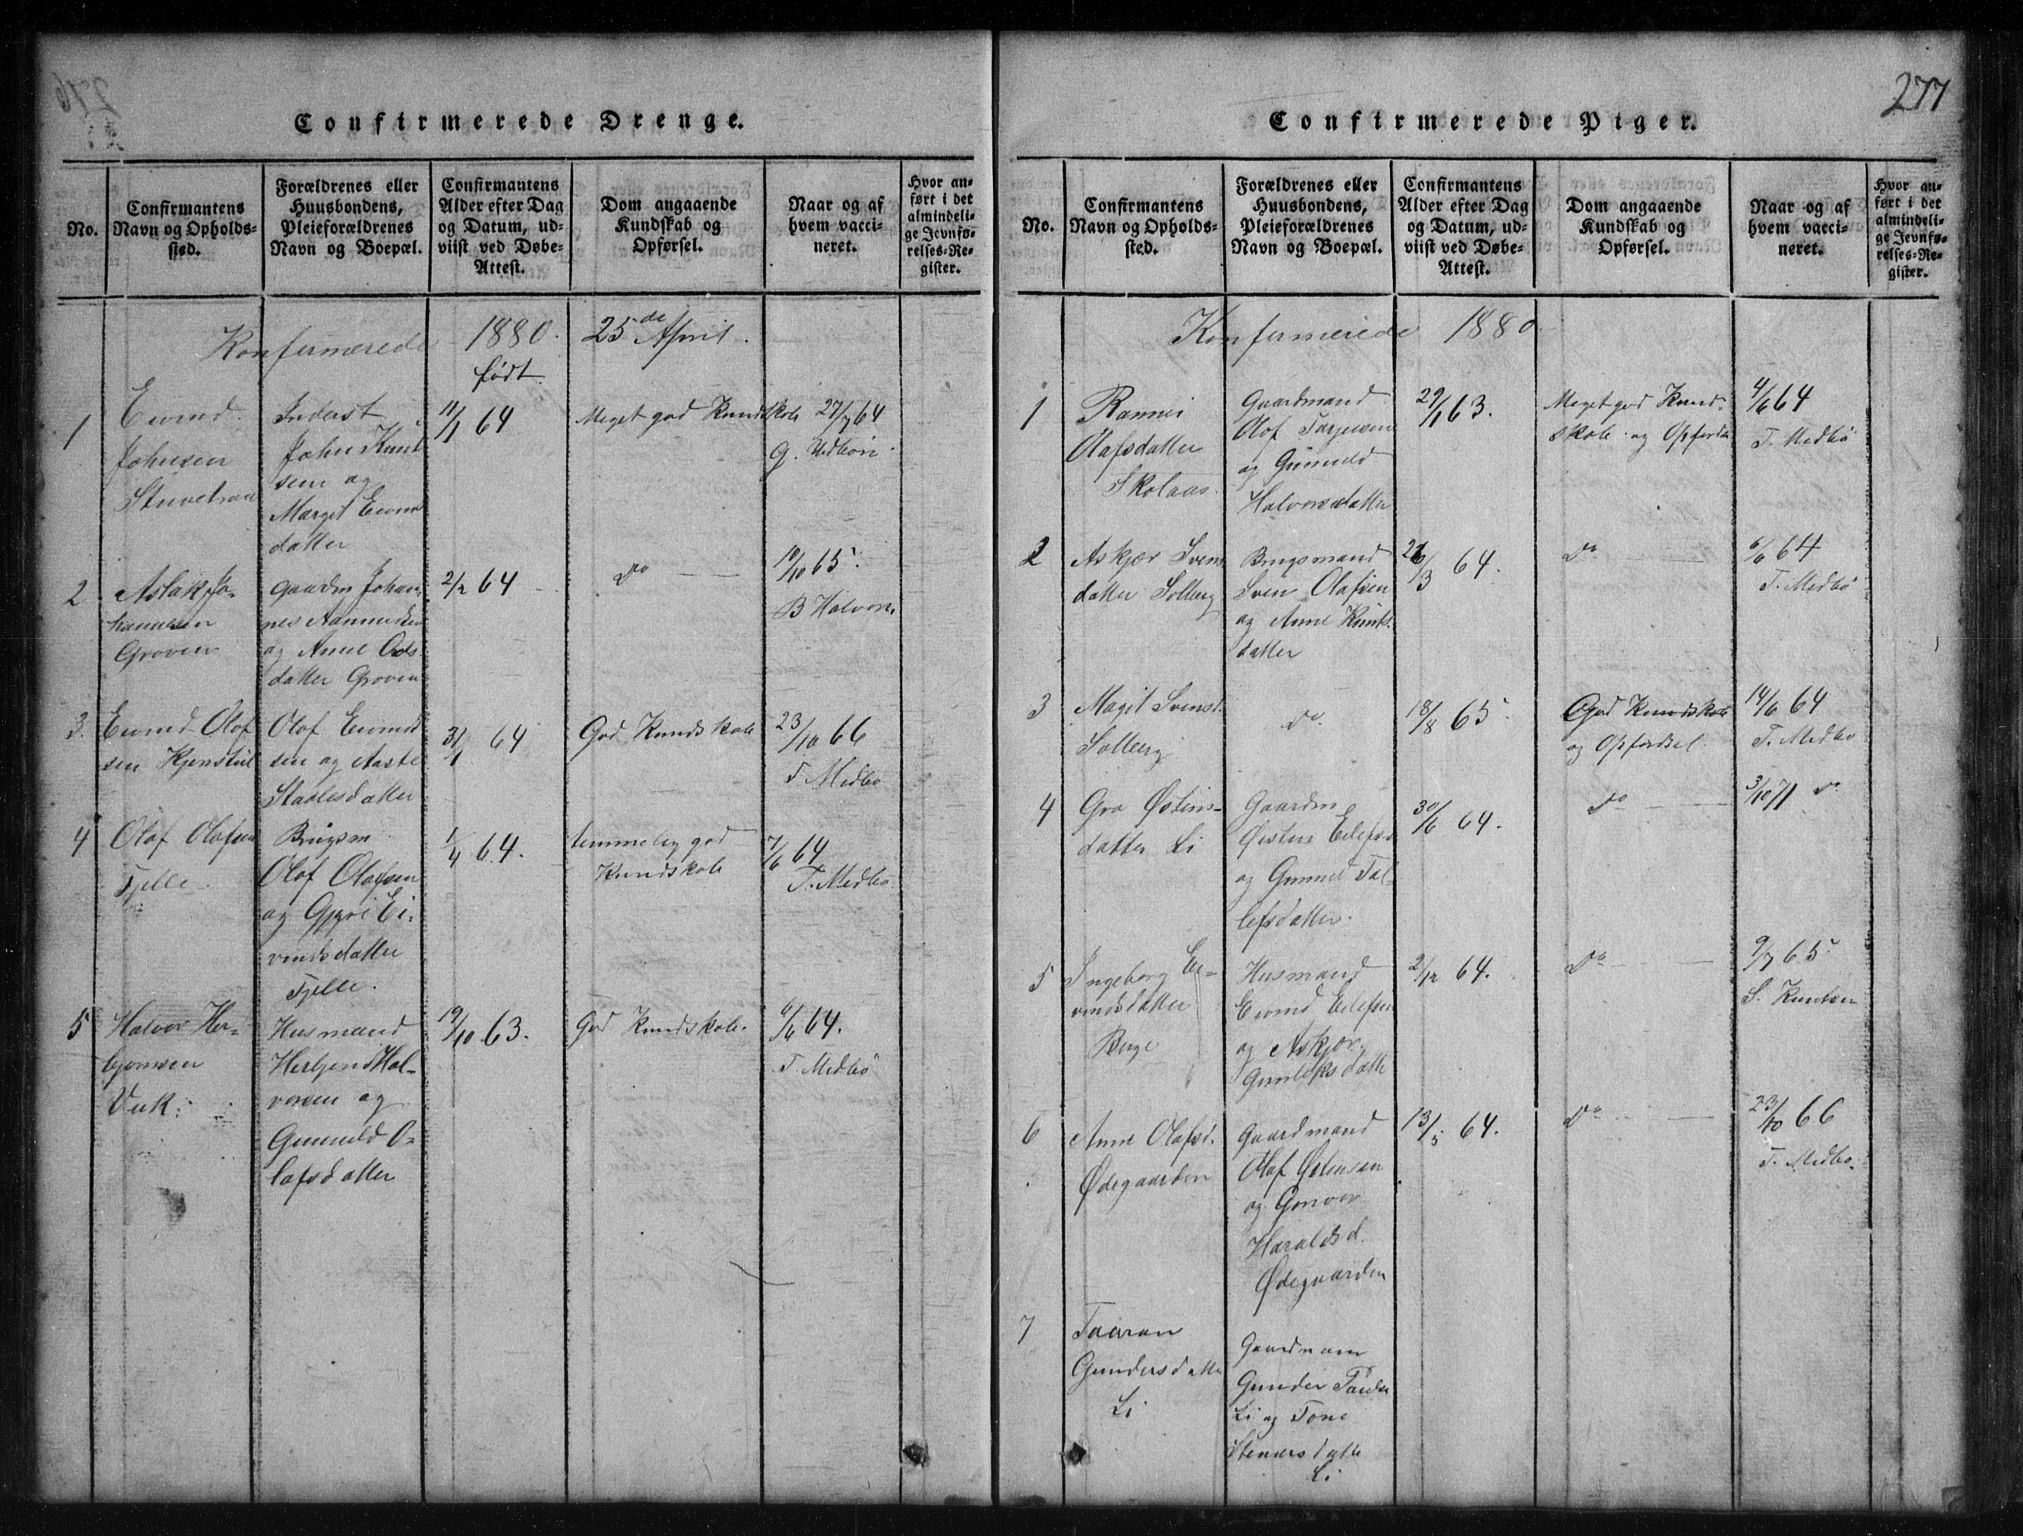 277
Confirmerede Drenge.
No.
Confirmantens
Navn og Opholds-
sted.
Forældrenes eller
Huusbondens,
Pleieforældrenes
Navn og Boepæl.
Confirmantens
Alder efter Dag
og Datum, ud-
viist ved Døbe-
Attest.
Dom angaaende
Kundskab og
Opførsel.
Naar og af
hvem vacci-
neret.
Hvor an-
ført i det
almindeli-
ge Jevnfø-
relses-Re-
gister.
Konfirmerede 1880. 25de April.
født.
1
Eivind
Johnsen
Inderst
John Knut
sen og
Marget Eivind
datter
11/1 64
Meget god Kundskab
27/7 64
G. Uedbøn
2
Aslak Jo-
hannesen
Groven
Gaardm Johan-
nes
og Anne
datter Groven
2/2 64
Do
19/10 65.
B Halvors
3.
Eivind Olof
sen
Olof Eivind
sen og Aaste
Staalesdatter
31/1 64
God Kundskab
23/10 66
T. Medbø
4
Olof Olofsen
Tjelle
Brugsm
Olof Olofsen
og Gjyri Ei-
vindsdatter
Tjelle.
1/4 64.
temmelig god
Kundskab
7/6 64
T. Medbø
5
Halvor Her-
bjørnsen
Husmand
Herbjørn Hal-
vorsen og
Gunnild O-
lafsdatter
19/10 63.
God Kundskab.
6/6 64.
T. Medbø
Confirmerede Piger.
No.
Confirmantens
Navn og Opholds-
sted.
Forældrenes eller
Huusbondens,
Pleieforældrenes
Navn og Boepæl.
Confirmantens
Alder efter Dag
og Datum, ud-
viist ved Døbe-
Attest.
Dom angaaende
Kundskab og
Opførsel.
Naar og af
hvem vacci-
neret.
Hvor an-
ført i det
almindeli-
ge Jevnfø-
relses-Re-
gister.
Konfirmerede 1880.
1
Rannei
Olafsdatter
Skolaas.
Gaardmand
Olof Targeisen
og Gunnild
Halvorsdatter
29/1 63.
Meget god Kund-
skab og Opførsel
4/6 64
T. Medbø
2
Askjær Svens
datter Solberg
Brugsmand
Sven Olafsen
og Anne Knuts-
datter
26/3 64.
Do
6/6 64
T. Medbø
3
Magit Svensd.
Solberg
Do.
18/8 65.
God Kundskab
og Opførdsel.
14/6 64
T. Medbø
4
Gro Østins-
datter Li
Gaardm
Øisten Eilefs
og Gunnel Tal-
lefsdatter.
30/6 64.
Do
3/10 71 Do
5
Ingeborg Ei-
vindsdatter
Berge
Husmand
Eivind Eilefsen
og Askjær
Gunleiksdatte
2/12 64.
Do
9/7 65.
S. Knutsen
6
Anne Olafsd.
Ødegaarden
Gaardmand
Olaf Østensen
og Gunvor
Haraldsd.
Ødegaarden
13/5 64.
Do
23/10 66
T. Medbø.
7
Taaran
Gundersdatte
Li
Gaardmann
Gunder
Li og Tone
Stenarsdatte
Li